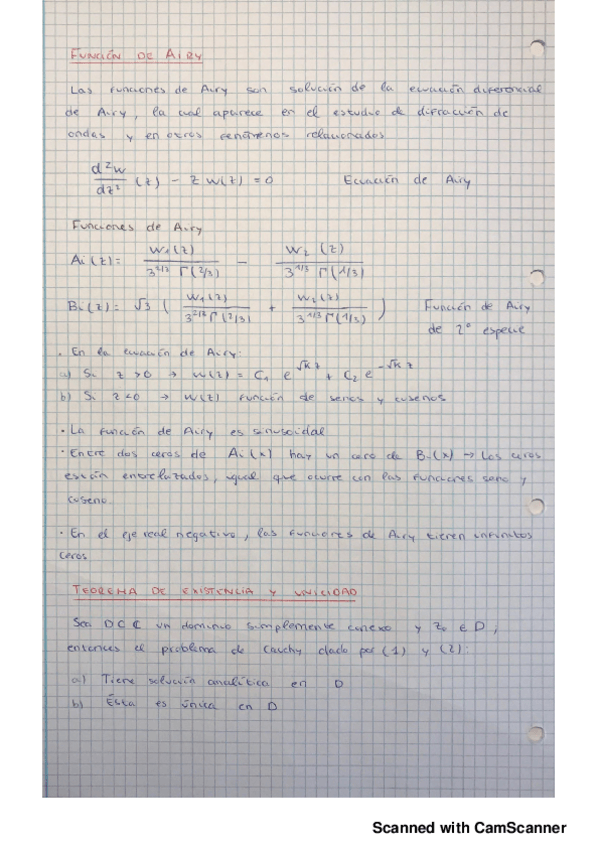 FUNCIÓN DE AIRY
Las funciones de Airy son solución de la ecuación diferencial
de Airy, la cual aparece en el estudio de difracción de
ondas y en otros fenómenos relacionados
d²w/dz² (z) - z w(z) = 0 Ecuación de Airy
Funciones de Airy
Ai(z) = w₁(z)/(3^{2/3} Γ(2/3)) - w₂(z)/(3^{1/3} Γ(1/3))
Bi(z) = √3 ( w₁(z)/(3^{2/3} Γ(2/3)) + w₂(z)/(3^{1/3} Γ(1/3)) ) Función de Airy
de 2º especie
· En la ecuación de Airy:
a) Si z > 0 → w(z) = C₁ e^{√k z} + C₂ e^{-√k z}
b) Si z < 0 → w(z) función de senos y cosenos
· La función de Airy es sinusoidal
· Entre dos ceros de Ai(x) hay un cero de Bi(x) → Los ceros
están entrelazados, igual que ocurre con las funciones seno y
coseno.
· En el eje real negativo, las funciones de Airy tienen infinitos
ceros
TEOREMA DE EXISTENCIA Y UNICIDAD
Sea D ⊂ ℂ un dominio simplemente conexo y z₀ ∈ D,
entonces el problema de Cauchy dado por (1) y (2):
a) Tiene solución analítica en D
b) Ésta es única en D
Scanned with CamScanner